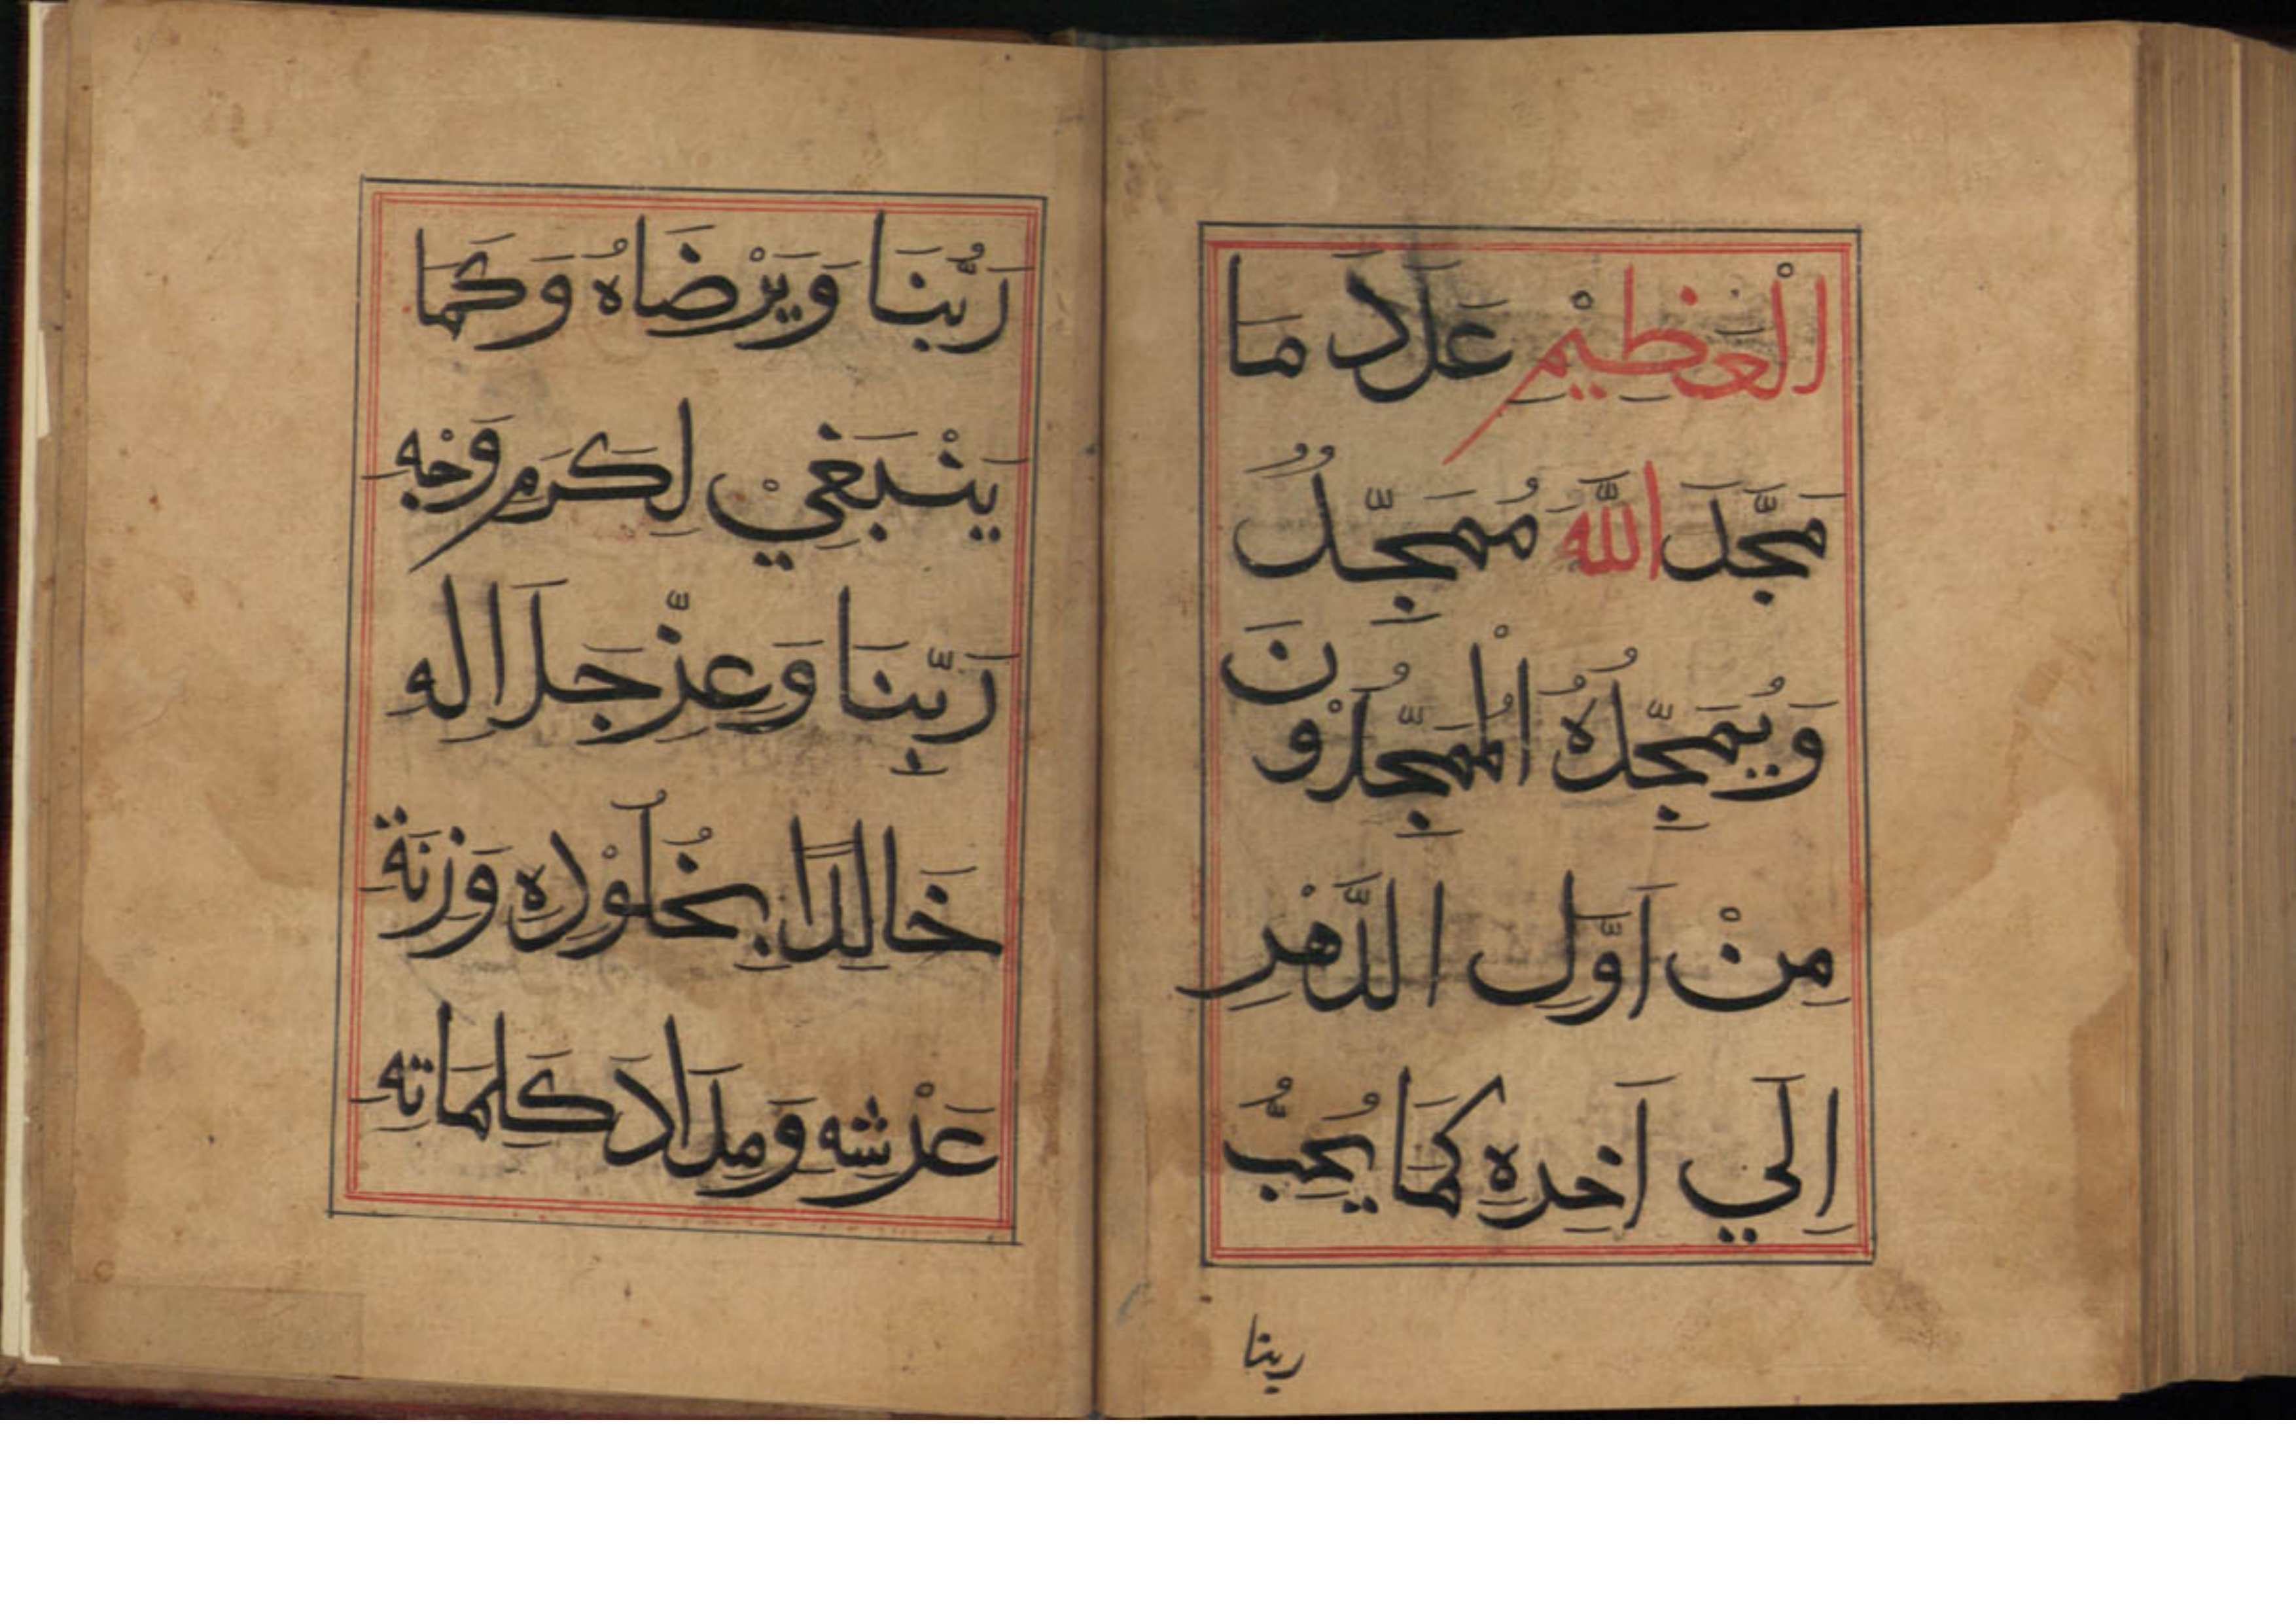 الْعَظِيْمِ عَدَدَ مَا
مَجَّدَ اللَّهَ مُمَجِّدٌ
وَيُمَجِّدُهُ الْمُمَجِّدُوْنَ
مِنْ اَوَّلِ الدَّهْرِ
اِلَي اَخِرِهِ كَمَا يُحِبُّ
ربنا
رَبُّنَا وَيَرْضَاهُ وَكَمَا
يَنْبَغِيْ لِكَرَمِ وَجْهِ
رَبِّنَا وَعِزِّ جَلَالِهِ
خَالِدًا بِخُلُوْدِهِ وَزِنَةَ
عَرْشِهِ وَمِدَادَ كَلِمَاتِهِ